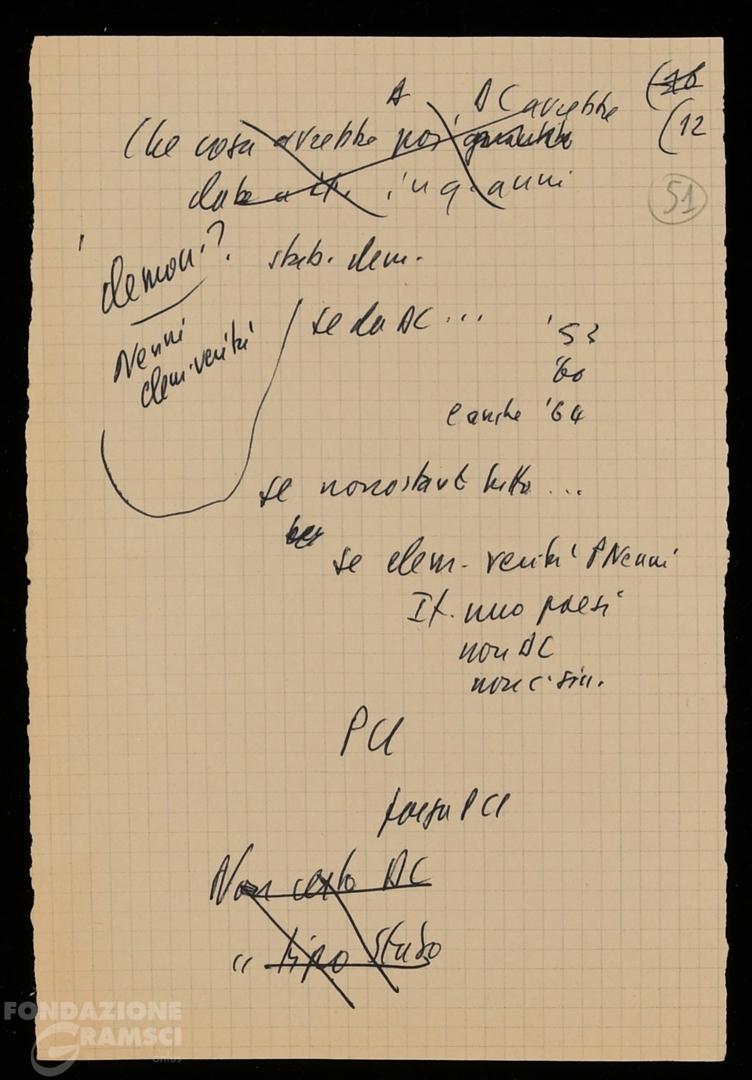 (16
A DC avrebbe
(12
Che cosa avrebbe poi
dato a it. in q. anni
51
demoni? stab. dem.
Nenni
dem. verità
se da DC ... '53
'60
e anche '64
se nonostante tutto ...
se dem. verità PNenni
It. uno paesi
non DC
non c. sin.
PCI
forza PCI
Non certo DC
" tipo Stato
FONDAZIONE
GRAMSCI
onlus